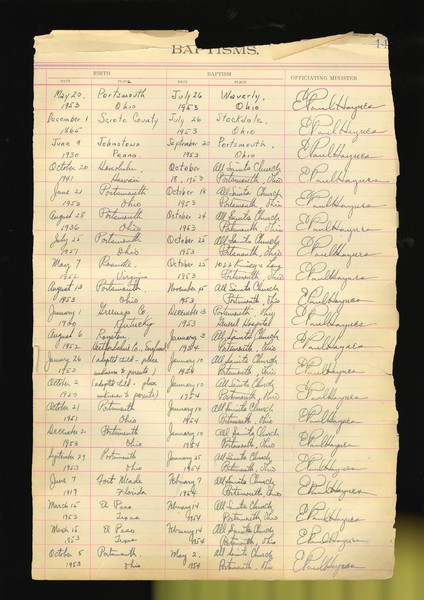 BAPTISMS.
14
BIRTH BAPTISM OFFICIATING MINISTER
DATE PLACE DATE PLACE
May 20, Portsmouth July 26 Waverly, E Paul Haynes
1953 Ohio 1953 Ohio
December 1 Scioto County July 26 Stockdale, E Paul Haynes
1865 Ohio 1953 Ohio
June 9 Johnstown September 20 Portsmouth, E Paul Haynes
1930 Penna. 1953 Ohio
October 20 Honolulu October All Saints Church E Paul Haynes
1941 Hawaii 18, 1953 Portsmouth, Ohio
June 21 Portsmouth October 18 All Saints Church E Paul Haynes
1953 Ohio 1953 Portsmouth, Ohio
August 25 Portsmouth October 24 All Saints Church E Paul Haynes
1936 Ohio 1953 Portsmouth, Ohio
July 25 Portsmouth October 25 All Saints Church E Paul Haynes
1951 Ohio 1953 Portsmouth, Ohio
May 7 Roanoke, October 25 1022 E Paul Haynes
1952 Virginia 1953 Portsmouth, Ohio
August 13 Portsmouth November 15 All Saints Church E Paul Haynes
1953 Ohio 1953 Portsmouth, Ohio
January 1 Greenup Co. December 13 Portsmouth, E Paul Haynes
1900 Kentucky 1953 General Hospital
August 6 January 3 All Saints Church E Paul Haynes
1952 England 1954 Portsmouth, Ohio
January 26 (adopted child - place January 10 All Saints Church E Paul Haynes
1952 unknown to parents) 1954 Portsmouth, Ohio
October 2 (adopted child - place January 10 All Saints Church E Paul Haynes
unknown to parents) 1954 Portsmouth, Ohio
October 21 Portsmouth January 10 All Saints Church E Paul Haynes
1951 Ohio 1954 Portsmouth, Ohio
December 2 Portsmouth January 10 All Saints Church E Paul Haynes
1953 Ohio 1954 Portsmouth, Ohio
September 29 Portsmouth January 25 All Saints Church E Paul Haynes
1953 Ohio 1954 Portsmouth, Ohio
June 7 Fort Meade February 7 All Saints Church E Paul Haynes
1917 Florida 1954 Portsmouth, Ohio
March 15 El Paso February 14 All Saints Church E Paul Haynes
1953 Texas 1954 Portsmouth, Ohio
March 15 El Paso February 14 All Saints Church E Paul Haynes
1953 Texas 1954 Portsmouth, Ohio
October 5 Portsmouth May 2, All Saints Church E Paul Haynes
1953 Ohio 1954 Portsmouth, Ohio